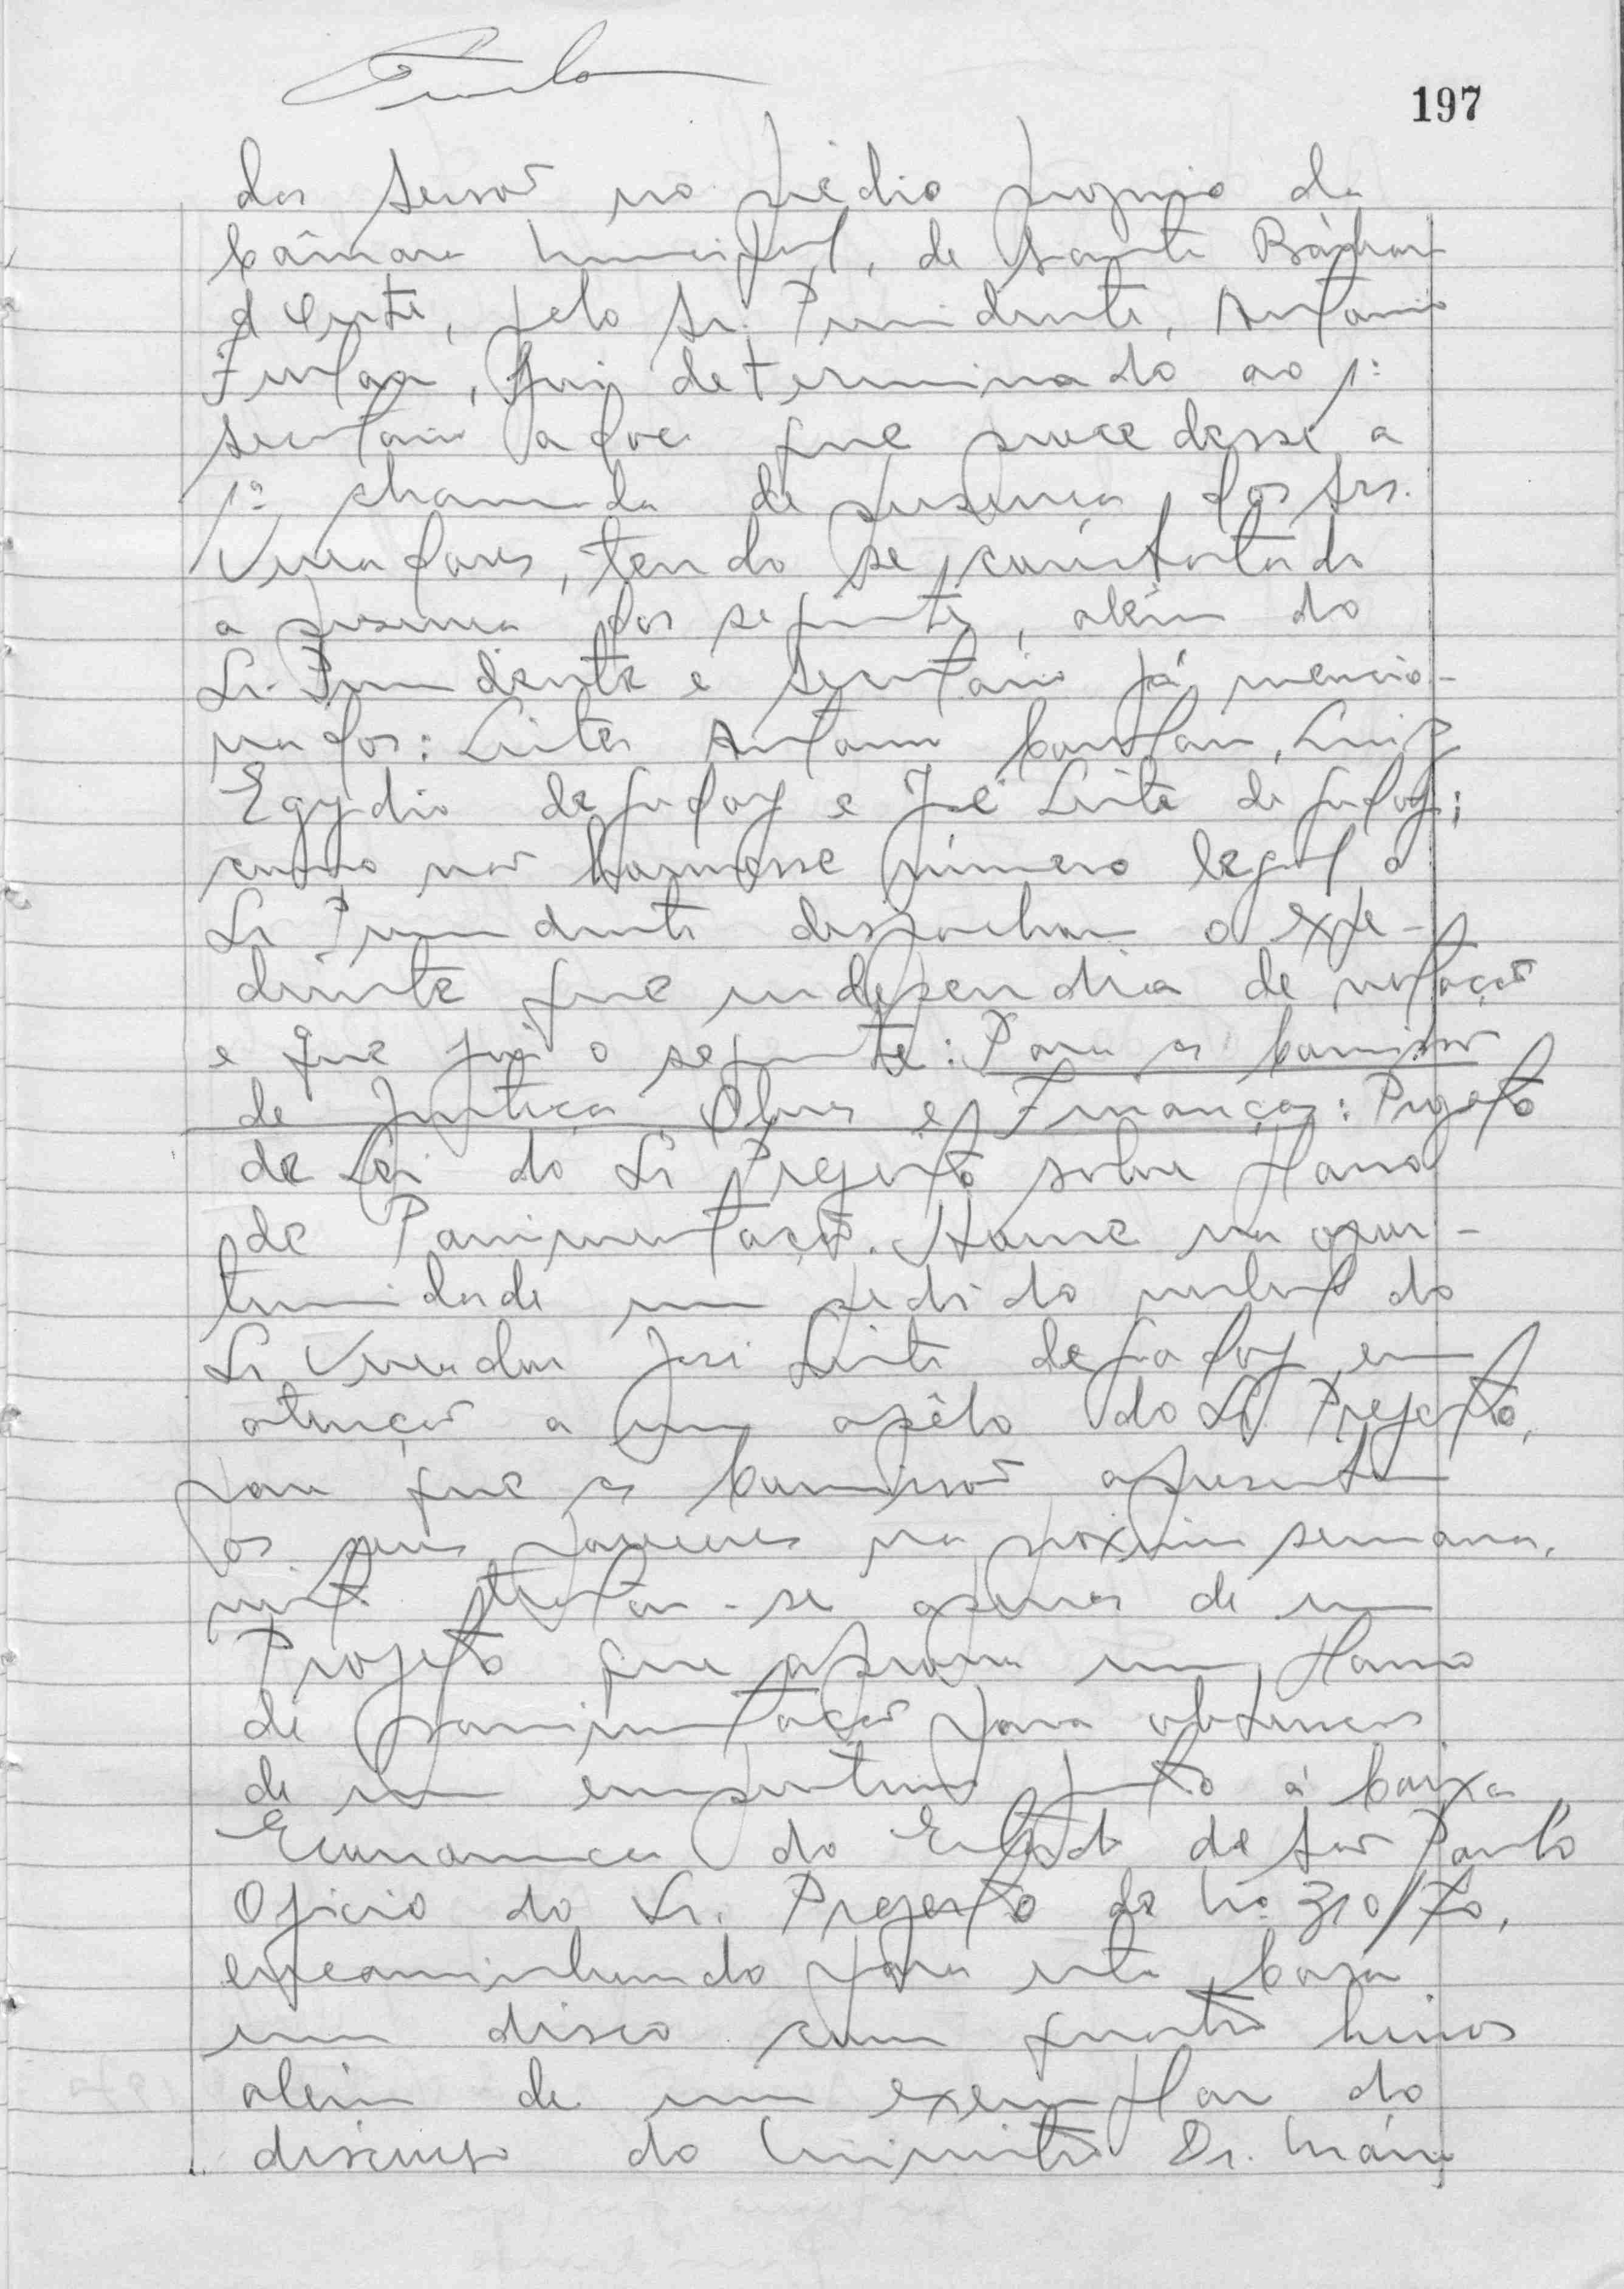 197
das Sessões no prédio proprio da
Câmara Municipal, de Santa Bárbara
d'Oeste, pelo Sr. Presidente, Antonio
Furlan, foi determinado ao 1º
secretario que procedesse a
1ª chamada de presença dos Srs.
Vereadores, tendo se constatado
a presença dos seguintes, além do
Sr. Presidente e Secretario já mencio-
nados: Antonio Luiz
Egydio de Godoy e José Leite de Godoy;
como não houvesse número legal o
Sr Presidente despachou o expe-
diente que independia de votação
e que foi o seguinte: Para as Comissões
de Justiça, Obras e Finanças: Projeto
de Lei do Sr Prefeito sobre Plano
de Pavimentação. Houve na opor-
tunidade um pedido verbal do
Sr Vereador José Leite de Godoy em
atenção a um apêlo do Sr. Prefeito,
para que as Comissões apresentem
os seus pareceres na próxima semana,
visto tratar-se apenas de um
Projeto que aprova um Plano
de pavimentação para obtenção
de um emprestimo junto á Caixa
Economica do Estado de São Paulo
Oficio do Sr. Prefeito de nº 310/70,
encaminhando para esta Casa
um disco com quatro hinos
além de um exemplar do
discurso do Ministro Dr. Mário